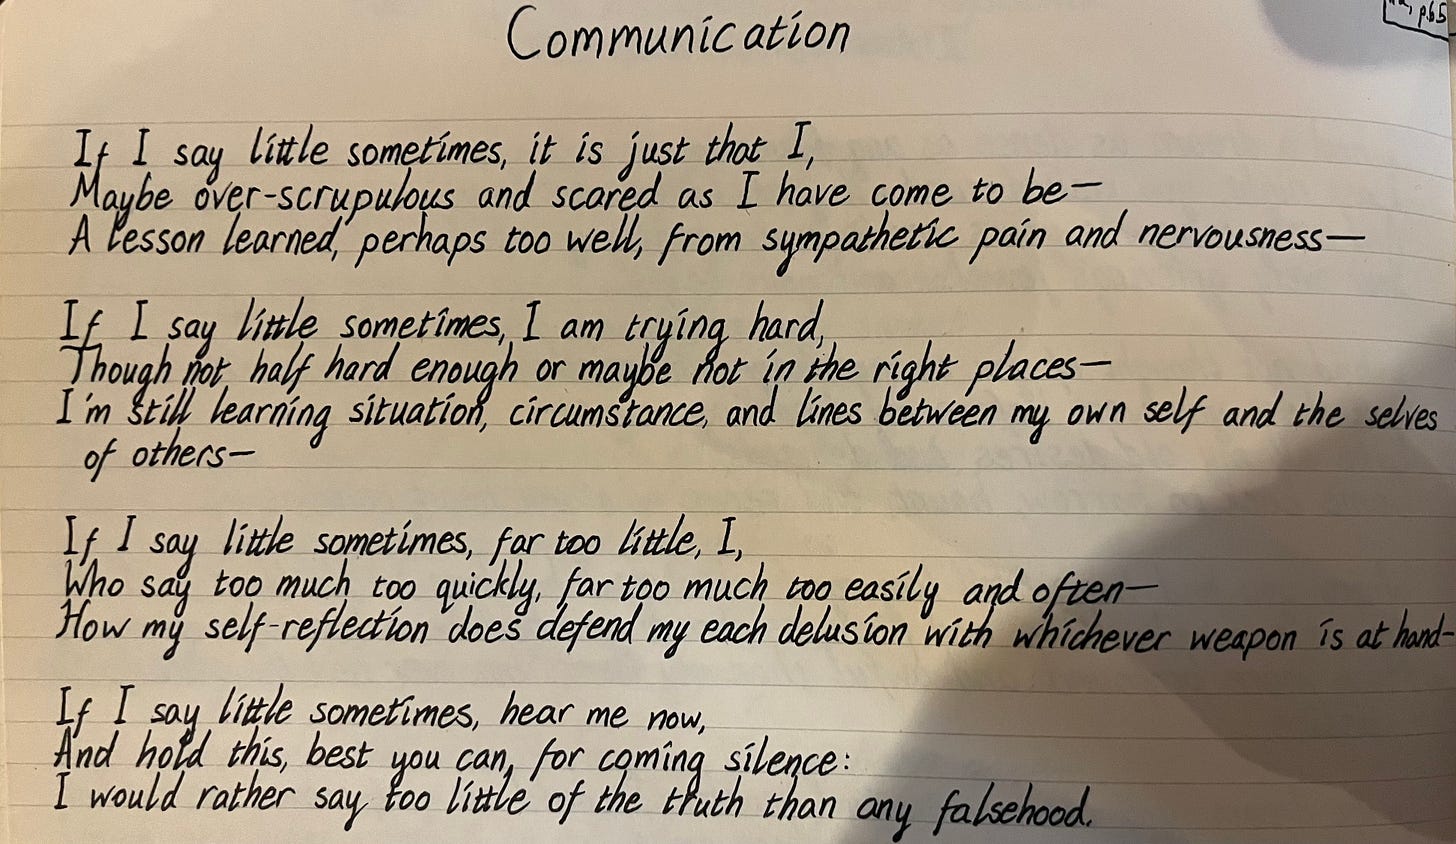 Communication
p.65
If I say little sometimes, it is just that I,
Maybe over-scrupulous and scared as I have come to be—
A lesson learned, perhaps too well, from sympathetic pain and nervousness—
If I say little sometimes, I am trying hard,
Though not half hard enough or maybe not in the right places—
I'm still learning situation, circumstance, and lines between my own self and the selves
of others—
If I say little sometimes, far too little, I,
Who say too much too quickly, far too much too easily and often—
How my self-reflection does defend my each delusion with whichever weapon is at hand—
If I say little sometimes, hear me now,
And hold this, best you can, for coming silence:
I would rather say too little of the truth than any falsehood.